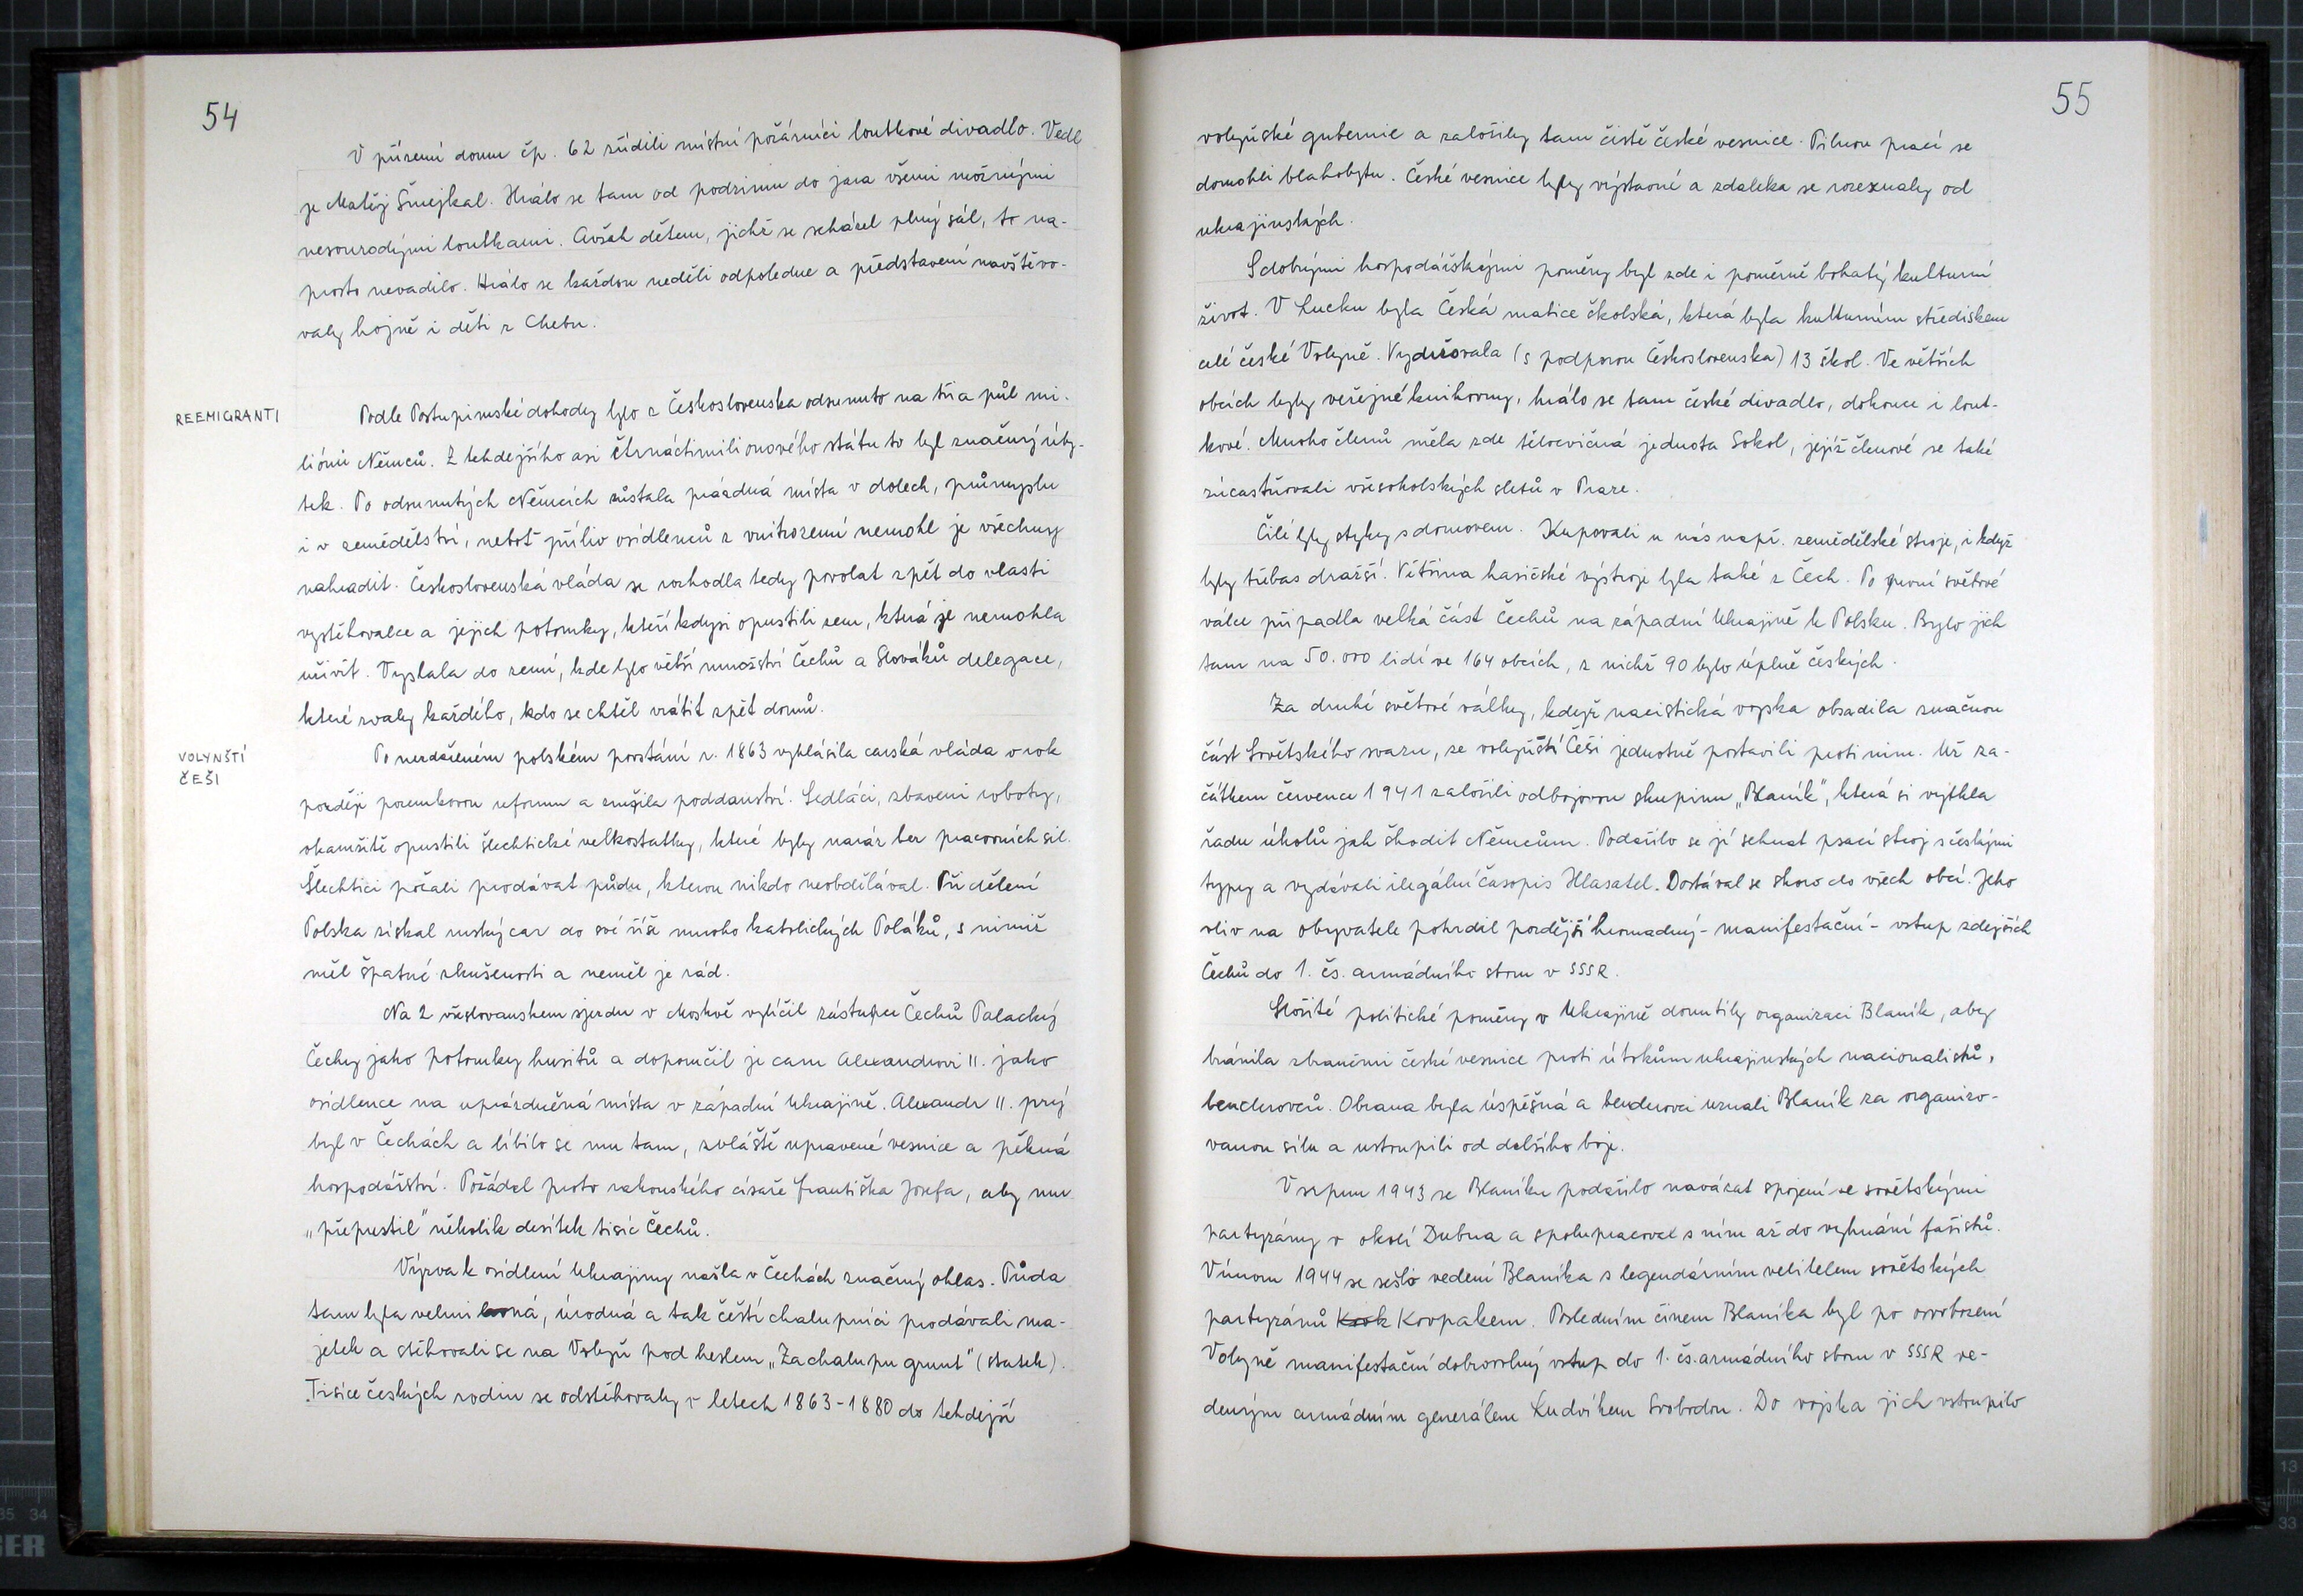 54
V přízemí domu čp. 62 zřídili místní požárníci loutkové divadlo. Vedl
je Matěj Šmejkal. Hrálo se tam od podzimu do jara všemi možnými
nesourodými loutkami. Avšak dětem, jichž se scházel plný sál, to na-
prosto nevadilo. Hrálo se každou neděli odpoledne a představení navštěvo-
valy hojně i děti z Chebu.
REEMIGRANTI
Podle Postupimské dohody bylo z Československa odsunuto na tři a půl mi-
liónů Němců. Z tehdejšího asi čtrnáctimilionového státu to byl značný úby-
tek. Po odsunutých Němcích zůstala prázdná místa v dolech, průmyslu
i v zemědělství, neboť příliv osídlenců z vnitrozemí nemohl je všechny
nahradit. Československá vláda se rozhodla tedy povolat zpět do vlasti
vystěhovalce a jejich potomky, kteří kdysi opustili zem, která je nemohla
uživit. Vyslala do zemí, kde bylo větší množství Čechů a Slováků delegace,
které zvaly každého, kdo se chtěl vrátit zpět domů.
VOLYNŠTÍ
ČEŠI
Po nezdařeném polském povstání r. 1863 vyhlásila carská vláda o rok
později pozemkovou reformu a zrušila poddanství. Sedláci, zbaveni roboty,
okamžitě opustili šlechtické velkostatky, které byly naráz bez pracovních sil.
Šlechtici počali prodávat půdu, kterou nikdo neobdělával. Při dělení
Polska získal ruský car do své říše mnoho katolických Poláků, s nimiž
měl špatné zkušenosti a neměl je rád.
Na 2 všeslovanskem sjezdu v Moskvě vylíčil zástupce Čechů Palacký
Čechy jako potomky husitů a doporučil je caru Alexandrovi II. jako
osídlence na uprázdněná místa v západní Ukrajině. Alexandr II. prý
byl v Čechách a líbilo se mu tam, zvláště upravené vesnice a pěkná
hospodářství. Požádal proto rakouského císaře Františka Josefa, aby mu
„přepustil" několik desítek tisíc Čechů.
Výzva k osídlení Ukrajiny našla v Čechách značný ohlas. Půda
tam byla velmi úrodná a tak čeští chalupníci prodávali ma-
jetek a stěhovali se na Volyň pod heslem „Za chalupu grunt" (statek).
Tisíce českých rodin se odstěhovaly v letech 1863-1880 do tehdejší
55
volyňské gubernie a založily tam čistě české vesnice. Pilnou prací se
domohli blahobytu. České vesnice byly výstavné a zdaleka se rozeznaly od
ukrajinských.
S dobrými hospodářskými poměry byl zde i poměrně bohatý kulturní
život. V Lucku byla Česká matice školská, která byla kulturním střediskem
celé české Volyně. Vydržovala (s podporou Československa) 13 škol. Ve větších
obcích byly veřejné knihovny, hrálo se tam české divadlo, dokonce i lout-
kové. Mnoho členů měla zde tělocvičná jednota Sokol, jejíž členové se také
zúčastňovali všesokolských sletů v Praze.
Čilé byly styky s domovem. Kupovali u nás např. zemědělské stroje, i když
byly třebas dražší. Většina hasičské výstroje byla také z Čech. Po první světové
válce připadla velká část Čechů na západní Ukrajině k Polsku. Bylo jich
tam na 50.000 lidí ve 164 obcích, z nichž 90 bylo úplně českých.
Za druhé světové války, když nacistická vojska obsadila značnou
část Sovětského svazu, se volyňští Češi jednotně postavili proti nim. Už za-
čátkem července 1941 založili odbojovou skupinu „Blaník", která si vytkla
řadu úkolů jak škodit Němcům. Podařilo se jí sehnat psací stroj s českými
typy a vydávali ilegální časopis Hlasatel. Dostával se skoro do všech obcí. Jeho
vliv na obyvatele potvrdil pozdější hromadný - manifestační - vstup zdejších
Čechů do 1. čs. armádního sboru v SSSR.
Složité politické poměry v Ukrajině donutily organizaci Blaník, aby
bránila zbraněmi české vesnice proti útokům ukrajinských nacionalistů,
benderovců. Obrana byla úspěšná a benderovci uznali Blaník za organizo-
vanou sílu a ustoupili od dalšího boje.
V srpnu 1943 se Blaníku podařilo navázat spojení se sovětskými
partyzány v okolí Dubna a spolupracovat s ním až do vyhnání fašistů.
V únoru 1944 se sešlo vedení Blaníka s legendárním velitelem sovětských
partyzánů Kovpakem. Posledním činem Blaníka byl po osvobození
Volyně manifestační dobrovolný vstup do 1. čs. armádního sboru v SSSR ve-
deným armádním generálem Ludvíkem Svobodou. Do vojska jich vstoupilo